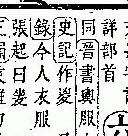 詳部首
同晉書輿服
史記作
錄今人衣服
張起曰